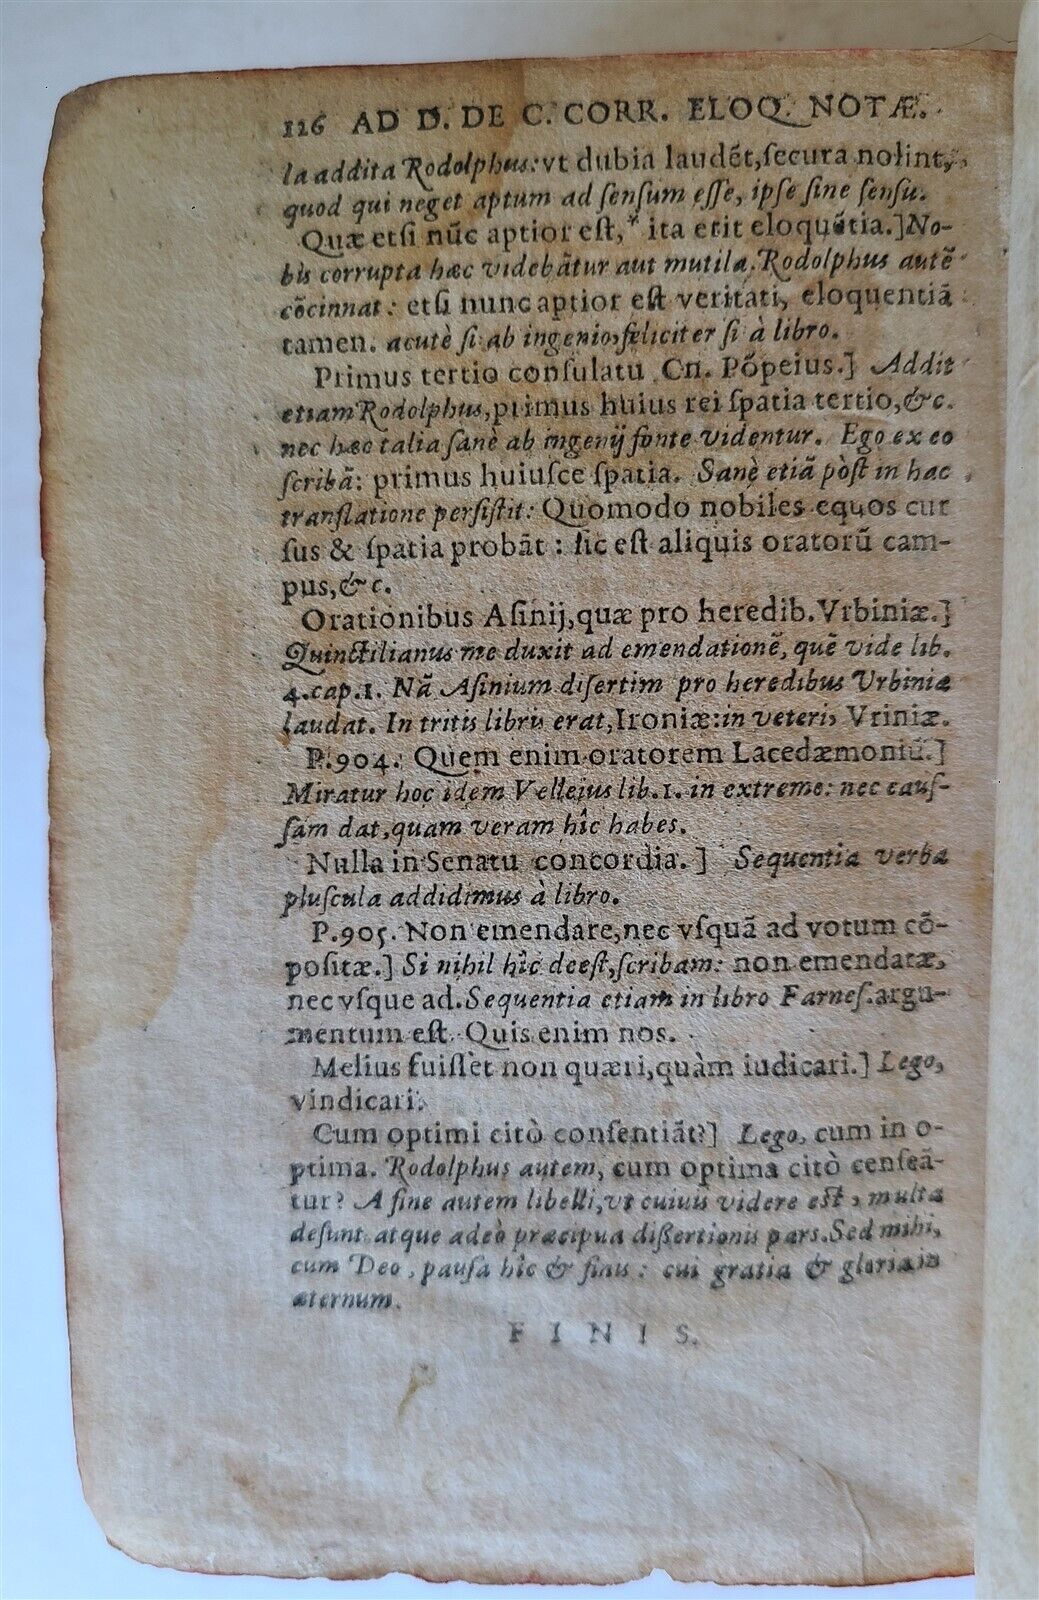 116 AD D. DE C. CORR. ELOQ. NOTÆ.
la addita Rodolphus: vt dubia laudẽt, ſecura nolint,
quod qui neget aptum ad ſenſum eſſe, ipſe ſine ſenſu.
Quæ etſi nũc aptior eſt,* ita erit eloquẽtia.] No-
bis corrupta hæc videbãtur aut mutila. Rodolphus autẽ
cõcinnat: etſi nunc aptior eſt veritati, eloquentiã
tamen. acutè ſi ab ingenio, feliciter ſi à libro.
Primus tertio conſulatu Cn. Põpeius.] Addit
etiam Rodolphus, primus huius rei ſpatia tertio, &c.
nec hæc talia ſanè ab ingenij fonte videntur. Ego ex eo
ſcribã: primus huiuſce ſpatia. Sanè etiã pòſt in hac
tranſlatione perſiſtit: Quomodo nobiles equos cur
ſus & ſpatia probãt: ſic eſt aliquis oratorũ cam-
pus, &c.
Orationibus Aſinij, quæ pro heredib. Vrbiniæ.]
Quinctilianus me duxit ad emendationẽ, quẽ vide lib.
4. cap. 1. Nã Aſinium diſertim pro heredibus Vrbiniæ
laudat. In tritis libris erat, Ironiæ: in veteri, Vriniæ.
P. 904. Quem enim oratorem Lacedæmoniũ.]
Miratur hoc idem Velleius lib. 1. in extremo: nec cauſ-
ſam dat, quam veram hîc habes.
Nulla in Senatu concordia.] Sequentia verba
pluſcula addidimus à libro.
P. 905. Non emendare, nec vſquã ad votum cõ-
poſitæ.] Si nihil hîc deeſt, ſcribam: non emendatæ,
nec vſque ad. Sequentia etiam in libro Farneſ. argu-
mentum eſt. Quis enim nos.
Melius fuiſſet non quæri, quàm iudicari.] Lego,
vindicari.
Cum optimi citò conſentiãt?] Lego, cum in o-
ptima. Rodolphus autem, cum optima citò cenſeã-
tur? A fine autem libelli, vt cuiuis videre eſt, multa
deſunt atque adeò præcipua diſſertionis pars. Sed mihi,
cum Deo, pauſa hîc & finis: cui gratia & gloria in
æternum.
FINIS.